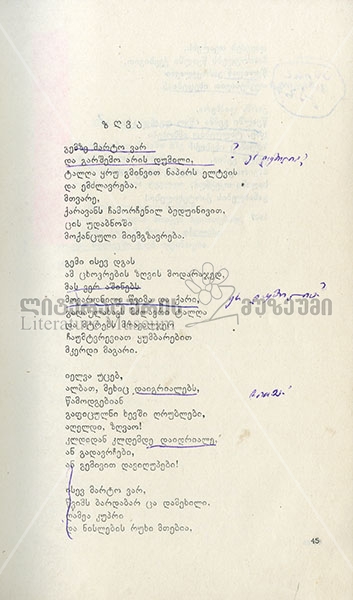 ზღვა
გემზე მარტო ვარ
და გარშემო არის დუმილი,
ტალღა ყრუ გმინვით ნაპირს ელტვის
და ემძლავრება.
მთვარე,
ქარავანს ჩამორჩენილ ბედუინივით,
ცის უდაბნოში
მოქანცული მიემგზავრება.
გემი ისევ დგას
ამ ცხოვრების ზღვის მოდარაჯედ,
მას ვერ აშინებს
ქარი,
ტალღა
და მტრებს მრავალჯერ
ჩაუმტვრევიათ ყუმბარებით
მკერდი მაგარი.
იელვა უცებ,
ალბათ, მეხიც დაიგრიალებს,
წამოდგებიან
გაფიცულნი ხევში ღრუბლები,
აღელდი, ზღვაო!
კლდიდან კლდემდე დაიდრიალე.
ან გადავრჩები,
ან გემივით დავიღუპები!
ისევ მარტო ვარ,
წვიმს ბარდაბარ ცა დამეხილი.
ღამეა კუპრი
და ნისლების რუხი მთებია.
45
ლიტერატურის მუზეუმი